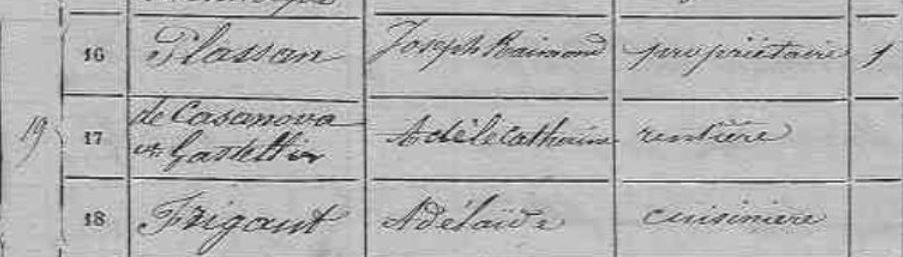 16 Plassan Joseph Raimond propriétaire 1
19
17 de Casanova Adèle Catherine rentière
18 Frigant Adélaïde cuisinière